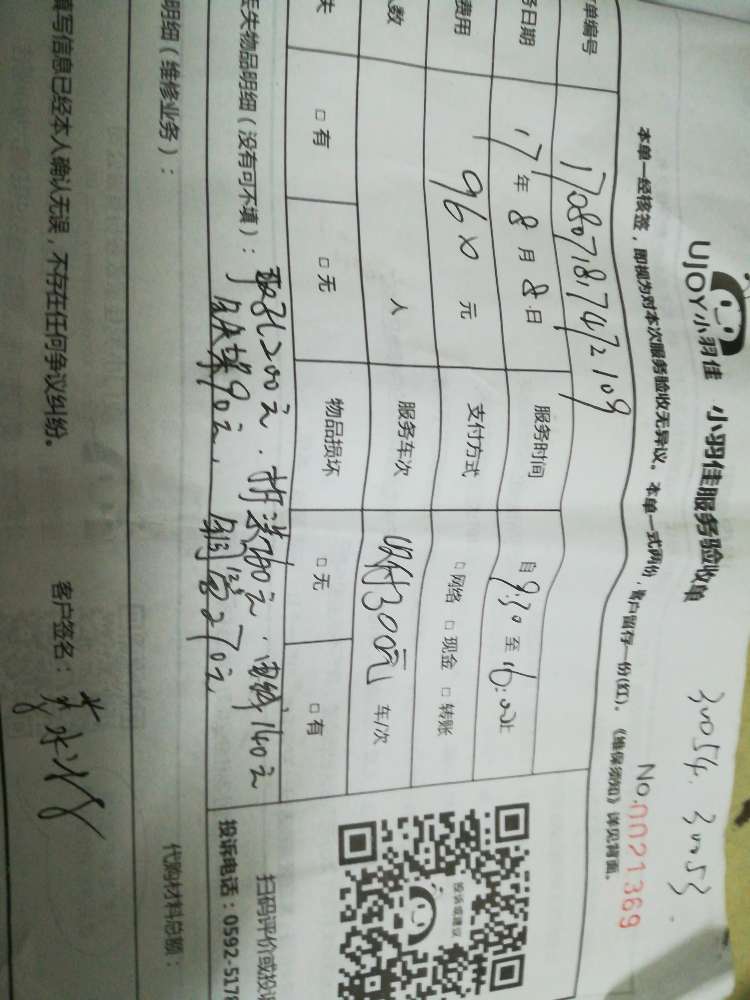 30054. 30053.
UJOY小羽佳 小羽佳服务验收单
No.0021369
本单一经核签，即视为对本次服务验收无异议。本单一式两份，客户留存一份(红)。《维保须知》详见背面。
单编号 17080787472109
务日期 17年8月8日 服务时间 自9:30至16:00止
费用 960元 支付方式 □网络 □现金 □转账
人数 人 服务车次 收300元 车/次
失 □有 □无 物品损坏 □无 □有
丢失物品明细（没有可不填）：
200元. 拆洗260元. 电线140元
90元、 270元
明细（维修业务）： 代购材料总额：
填写信息已经本人确认无误，不存在任何争议纠纷。 客户签名：
投诉或建议
扫码评价或投诉
投诉电话：0592-5178